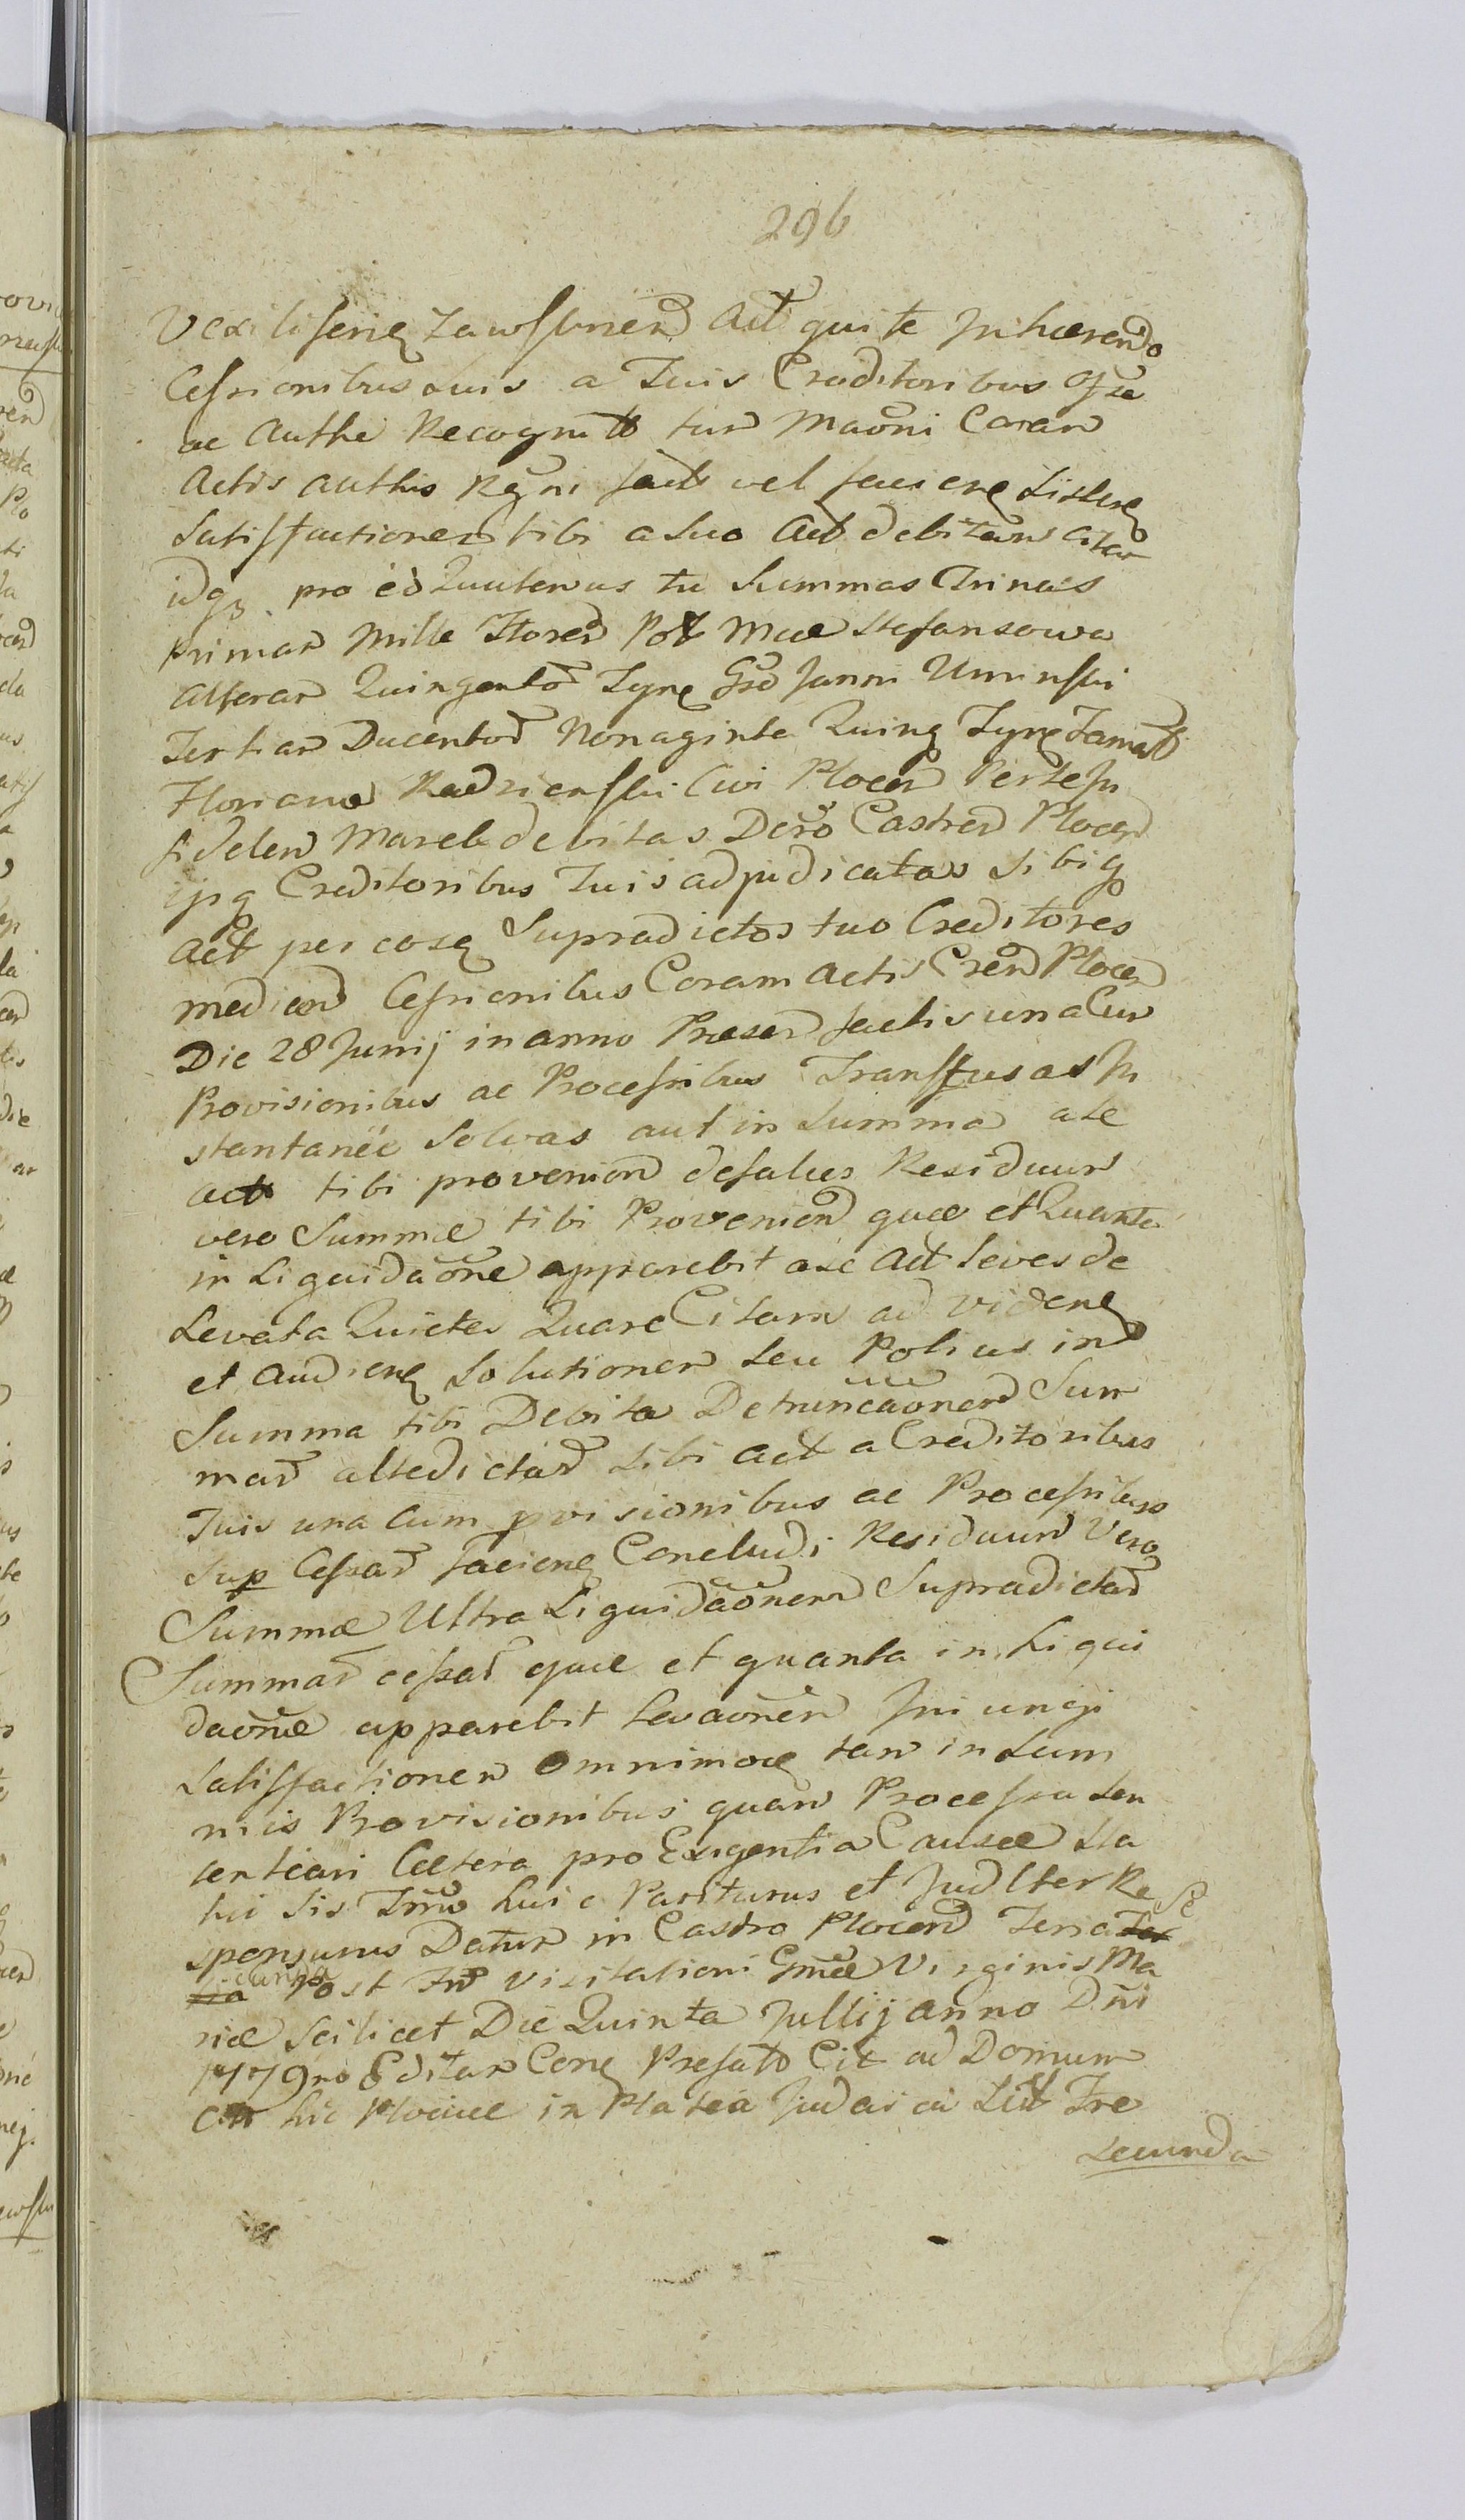 296
Vexiliferi Zawskrien Act qui te Inhærendo
Cessionibus suis a Tuis Creditoribus
ac Authe Recognitt tum Maōni Coram
Actis authis Regni fact vel faciene sistere
Satisfactionem tibi a suo Act debitam citar
idq3 pro eo Quatenus tu Summas Trinas
primam Mille Floren Pol Mae Stefansowa
Alteram Quingentor Tynf Gnd Janni Uminski
Tertiam Ducentor Nonaginta Quinq Tynf Famatt
Floriano Radzienski Civi Plocen Perte In
fidelem Marek debitas Decro Castren Plocen
ijsq Creditoribus Tuis adjudicatas sibiq
Act per eosq Supradictos tuo Creditores
median Cessionibus Coram Actis Cren Plocen
Die 28 Junij in anno Præsen factis una Cum
Provisionibus ac Processibus Transfusas In
stantanèe Solvas aut in Summa a se
act tibi provenien defalces Residuum
vero Summæ tibi Provenien quæ et Quanta
in Liquidaōne apparebit a se Act leves de
Levata Quietes Quare Citaris ad videne
et Audiene Solutionem seu Potius in
Summa tibi Debita Detruncaōnem Sum
mar altedictar sibi act a Creditoribus
Tuis una Cum pvisionibus ac Processibus
Sup Cessar faciene Concludi Residuum Vero
Summæ Ultra Liquidaōnem Supradictar
Summar cessar quæ et quanta in Liqui
daōne apparebit Levaōnem Iniungi
Satisfactionem Omnimod tam in Sum
mis Provisionibus quam Processu Sen
tentiari Cætera pro Exigentia Causæ Sta
tui Sis Tmō huic Pariturus et Judlter Re
sponsurus Datum in Castro Plocen Feria Ter Se
tia cunda Post Fm Visitationi Gmæ Virginis Ma
riæ scilicet Die Quinta Jullij anno Dni
1779no Editar Conq Prefatō Cit ad Domum
hic Plociæ in Platea Judaica Fre
secunda